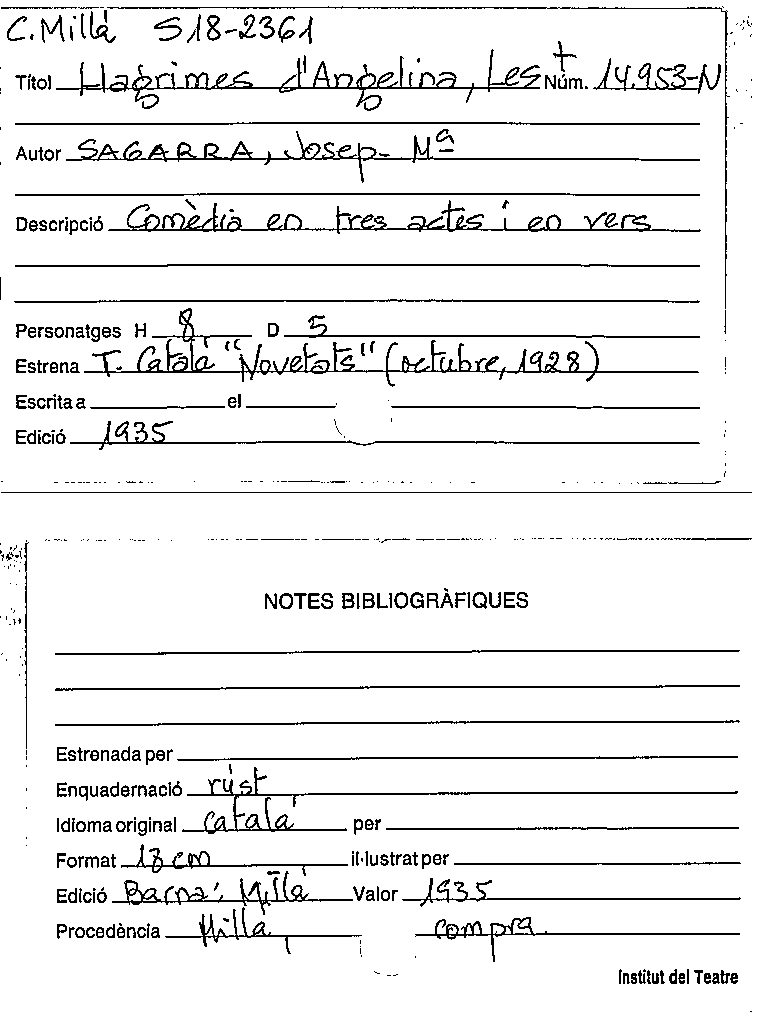 C. Millà S18-2361
Títol Llàgrimes d'Angelina, Les Núm. 14.953-N
Autor SAGARRA, Josep Mª
Descripció Comèdia en tres actes i en vers
Personatges H 8 D 5
Estrena T. Català "Novetats" (octubre, 1928)
Escrita a el
Edició 1935
NOTES BIBLIOGRÀFIQUES
Estrenada per
Enquadernació rúst
Idioma original català per
Format 18 cm il·lustrat per
Edició Barna: Millà Valor 1935
Procedència Millà, compra.
Institut del Teatre